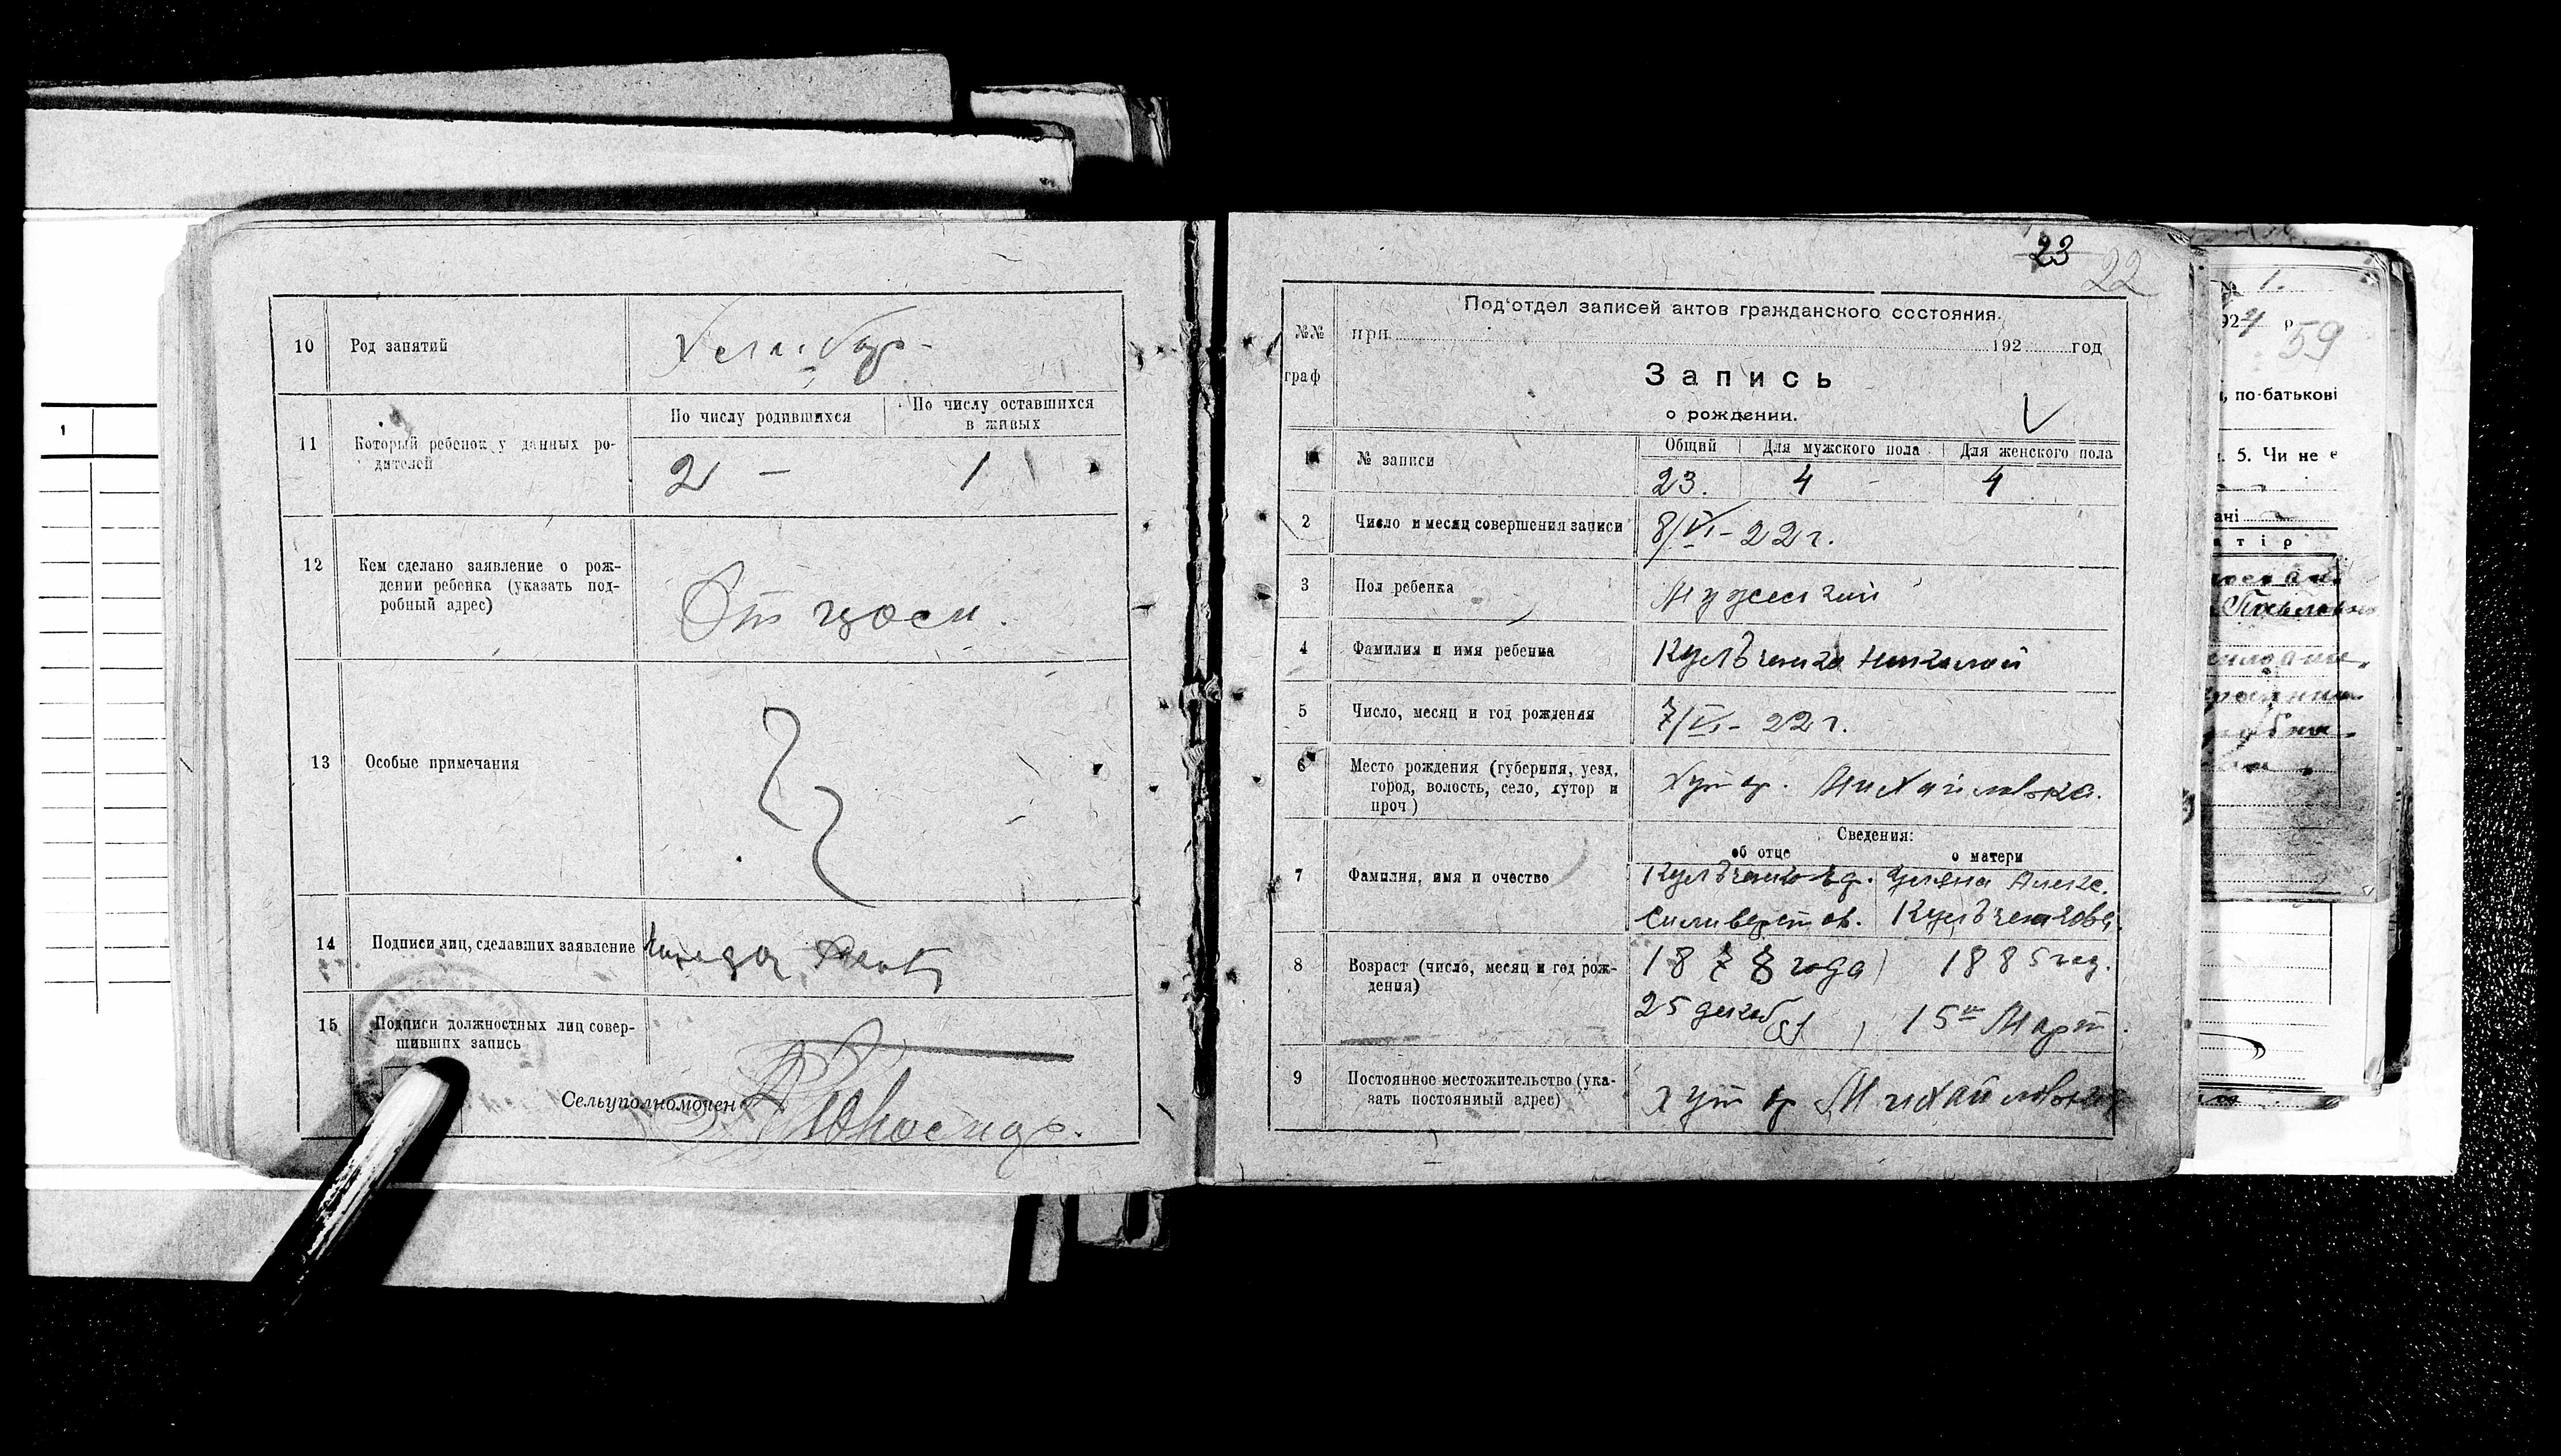 10 Род занятий
11 Который ребенок у данных ро-
дителей
По числу родившихся
По числу оставшихся
в живых
2 —
1
12 Кем сделано заявление о рож-
дении ребенка (указать под-
робный адрес)
Отцоем.
13 Особые примечания
14 Подписи лиц, сделавших заявление
15 Подписи должностных лиц совер-
шивших запись
Сельуполномочен
23
22
№№
граф
Под'отдел записей актов гражданского состояния.
при 192 год
Запись
о рождении.
1 № записи
Общий Для мужского пола Для женского пола
23. 4 4
2 Число и месяц совершения записи 8/VI - 22 г.
3 Пол ребенка Мужеский
4 Фамилия и имя ребенка Кулъченко Николай
5 Число, месяц и год рождения 7/VI - 22 г.
6 Место рождения (губерния, уезд,
город, волость, село, хутор и
проч)
Хутор. Михайловка.
Сведения:
об отце о матери
7 Фамилия, имя и очество
Кулъченко Улияна Алекс.
Силиверстов. Кулъченкова
8 Возраст (число, месяц и год рож-
дения)
1878 года 1885 год.
25 декаб 15го Март
9 Постоянное местожительство (ука-
зать постоянный адрес)
хутор Михайловка
1
1.
192 р
59
, по-батькові
5. Чи не є
ані
а т і р